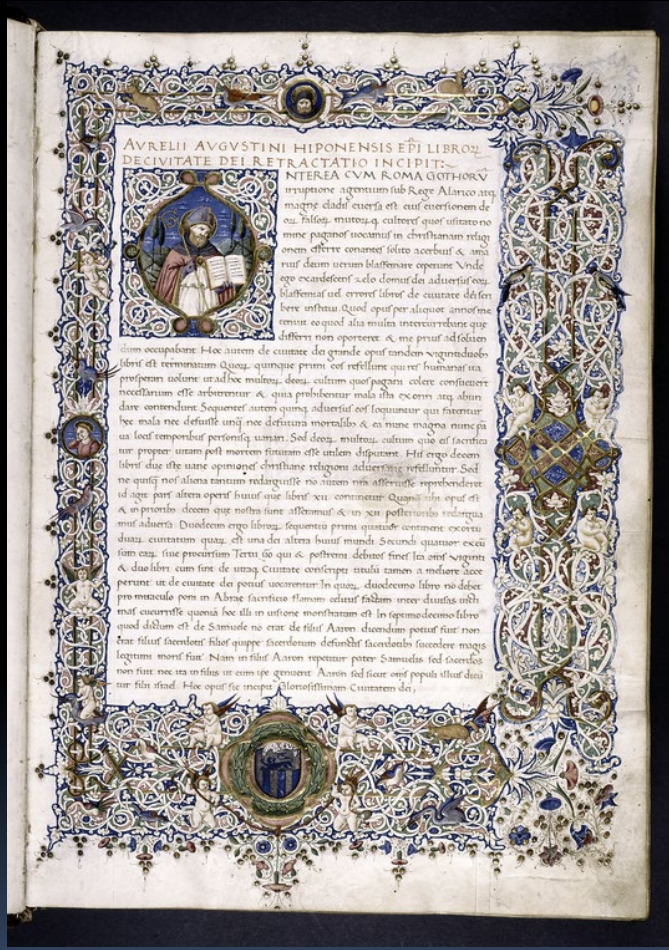 AVRELII AVGVSTINI HIPONENSIS EPI LIBROꝜ
DE CIVITATE DEI RETRACTATIO INCIPIT:~
NTEREA CVM ROMA GOTHORV̄
irruptione agentium sub Rege Alarico atq
magne cladis eversa est eius eversionem de
oꝝ falsoꝝ multorꝗ cultores quos usitato no
mine paganos uocamus in christianam religi
onem referre conantes solito acerbius & ama
rius deum uerum blasfemare ceperunt Vnde
ego exardescens zelo domus dei adversus eoꝝ
blasfemias vel errores libros de ciuitate dei scri
bere institui. Quod opus per aliquot annos me
tenuit eo quod alia multa intercurrebant que
differri non oporteret & me prius ad soluen
dum occupabant. Hoc autem de ciuitate dei grande opus tandem viginti duob
libris est terminatum Quoꝝ quinque primi eos refellunt qui res humanas ita
prosperari uolunt ut ad hoc multoꝝ deoꝝ cultum quos pagani colere consueuert
necessarium esse arbitrentur & quia prohibentur mala ista exoriri atq abun
dare contendunt Sequentes autem quinq adversus eos loquuntur qui fatentur
hec mala nec defuisse unq nec defutura mortalib & ea nunc magna nunc pa
ua locis temporibus personisq uariari. Sed deoꝝ multoꝝ cultum quo eis sacrifica
tur propter uitam post mortem futuram esse utilem disputant. His ergo decem
libris due iste uane opiniones christiane religioni adversarie refelluntur. Sed
ne quisq nos aliena tantum redarguisse no autem nra asseruisse reprehenderet
id agit pars altera operis huius que libris xii continetur Quanq ubi opus est
& in prioribus decem que nostra sunt asseramus & in xii posterioribus redargua
mus adversa. Duodecim ergo libroꝝ sequentiu primi quatuor continent exortu
duaꝝ ciuitatum quaꝝ est una dei altera huius mundi. Secundi quatuor excu
sum eaꝝ siue procursum Tertii uo qui & postremi debitos fines Ita oms viginti
& duo libri cum sint de utraq Ciuitate conscripti titulu tamen a meliore acce
perunt ut de ciuitate dei potius uocarentur In quoꝝ duodecimo libro no debet
pro miraculo poni in Abrae sacrificio flamam celitus factam inter diuisas uicti
mas cucurrisse quonia hoc illi in uisione monstratum est In septimo decimo libro
quod dictum est de Samuele no erat de filiis Aaron dicendum potius fuit non
erat filius sacerdotis filios quippe sacerdotum defunctis sacerdotib succedere magis
legitimi moris fuit Nam in filiis Aaron reperitur pater Samuelis sed sacerdos
non fuit nec ita in filiis ut eum ipe genuerit Aaron sed sicut oms populi illius dicu
tur filii israel. Hoc opus sic incipit Gloriosissimam Ciuitatem dei;